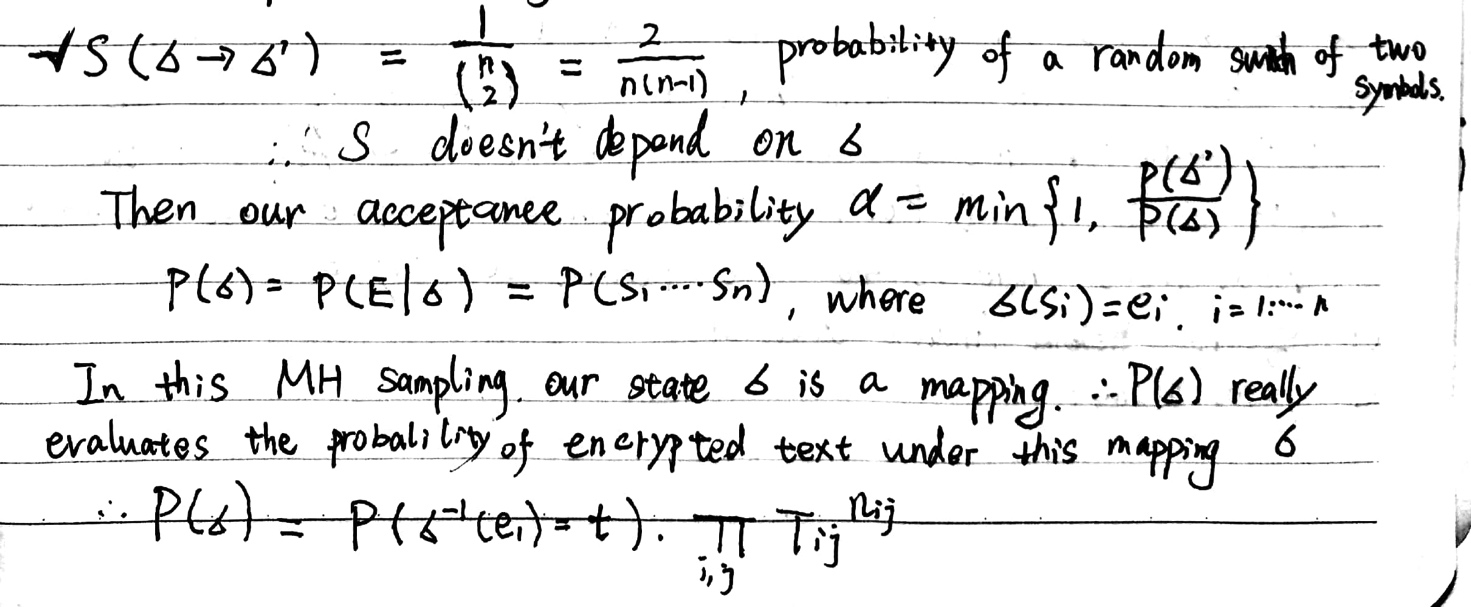 ✓S(σ→σ') = 1/(n 2) = 2/n(n-1), probability of a random swith of two symbols.
∴ S doesn't depend on σ
Then our acceptance probability α = min{1, P(σ')/P(σ)}
P(σ) = P(E|σ) = P(S₁····Sn), where σ(Si)=ei. i=1:···n
In this MH sampling. our state σ is a mapping. ∴ P(σ) really
evaluates the probalility of encrypted text under this mapping σ
∴ P(σ) = P(σ⁻¹(e₁)=t). ∏i,j Tij^nij